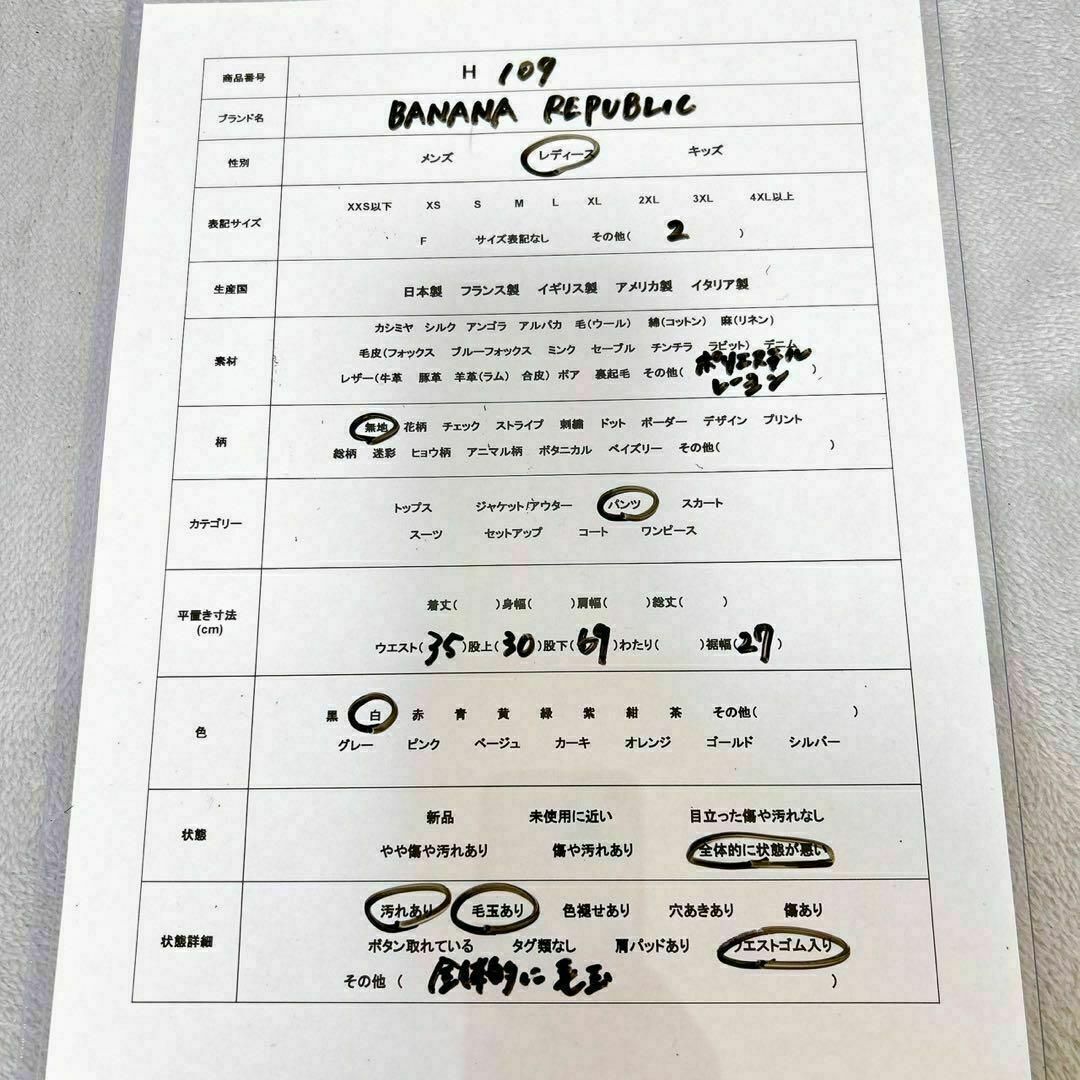 商品番号 H 109
ブランド名 BANANA REPUBLIC
性別 メンズ レディース キッズ
XXS以下 XS S M L XL 2XL 3XL 4XL以上
表記サイズ
F サイズ表記なし その他( 2 )
生産国 日本製 フランス製 イギリス製 アメリカ製 イタリア製
カシミヤ シルク アンゴラ アルパカ 毛(ウール) 綿(コットン) 麻(リネン)
素材 毛皮(フォックス ブルーフォックス ミンク セーブル チンチラ ラビット) デニム
レザー(牛革 豚革 羊革(ラム) 合皮) ボア 裏起毛 その他( ポリエステル レーヨン )
柄 無地 花柄 チェック ストライプ 刺繍 ドット ボーダー デザイン プリント
総柄 迷彩 ヒョウ柄 アニマル柄 ボタニカル ペイズリー その他( )
カテゴリー トップス ジャケット/アウター パンツ スカート
スーツ セットアップ コート ワンピース
平置き寸法 着丈( )身幅( )肩幅( )総丈( )
(cm) ウエスト( 35 )股上( 30 )股下( 69 )わたり( )裾幅( 27 )
色 黒 白 赤 青 黄 緑 紫 紺 茶 その他( )
グレー ピンク ベージュ カーキ オレンジ ゴールド シルバー
状態 新品 未使用に近い 目立った傷や汚れなし
やや傷や汚れあり 傷や汚れあり 全体的に状態が悪い
状態詳細 汚れあり 毛玉あり 色褪せあり 穴あきあり 傷あり
ボタン取れている タグ類なし 肩パッドあり ウエストゴム入り
その他 ( 全体的に毛玉 )